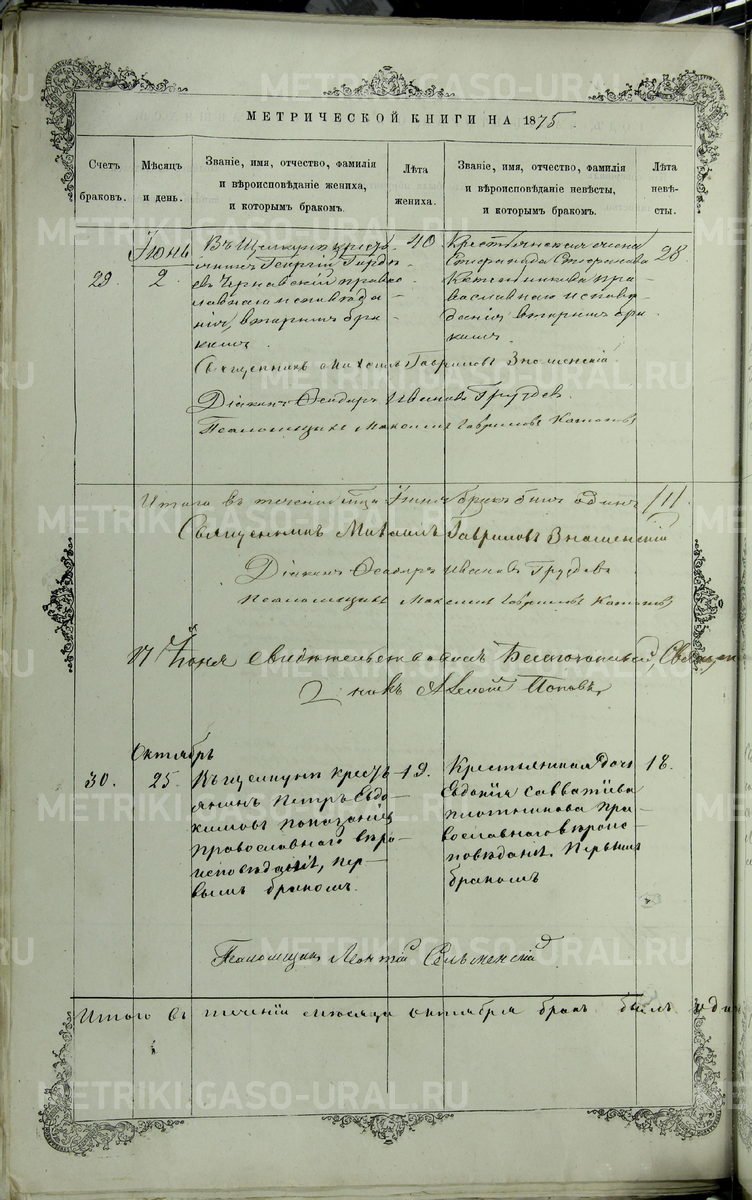 МЕТРИЧЕСКОЙ КНИГИ НА 1875.
Счетъ браковъ.
Мѣсяцъ и день.
Званіе, имя, отчество, фамилія
и вѣроисповѣданіе жениха,
и которымъ бракомъ.
Лѣта жениха.
Званіе, имя, отчество, фамилія
и вѣроисповѣданіе невѣсты,
и которымъ бракомъ.
Лѣта невѣ-
сты.
Іюнь
29
2
Георгій
въ Чернавскій право
славнаго исповѣда
нія, вторымъ бра
комъ.
40
Крестьянская
Стефанида Стефанова
пра-
вославнаго исповѣ
данія вторымъ бра
комъ.
28
Священникъ Михаилъ Гавриловъ Знаменскій
Діаконъ Ѳеодоръ Ивановъ Груздевъ
Псаломщикъ Максимъ Гавриловъ
Итого въ теченіе м-ца Іюня бракъ былъ одинъ /1/
Священникъ Михаилъ Гавриловъ Знаменскій
Діаконъ Ѳеодоръ Ивановъ Груздевъ
Псаломщикъ Максимъ Гавриловъ
17 Іюня свидѣтельствовалъ Благочинный, Священ
никъ Алексій Поповъ
Октябрь
30.
25.
крестъ
янинъ Петръ Евдо-
кимовъ
Православнаго вѣро
исповѣданія, пер-
вымъ бракомъ.
19.
Крестьянская дочь
Евдокія Савватіева
Плотникова пра-
вославнаго вѣроис-
повѣданія. Первымъ
бракомъ
18.
Псаломщикъ Леонтій Сельменскій
Итого въ теченіи мѣсяца октября бракъ былъ один
METRIKI.GASO-URAL.RU